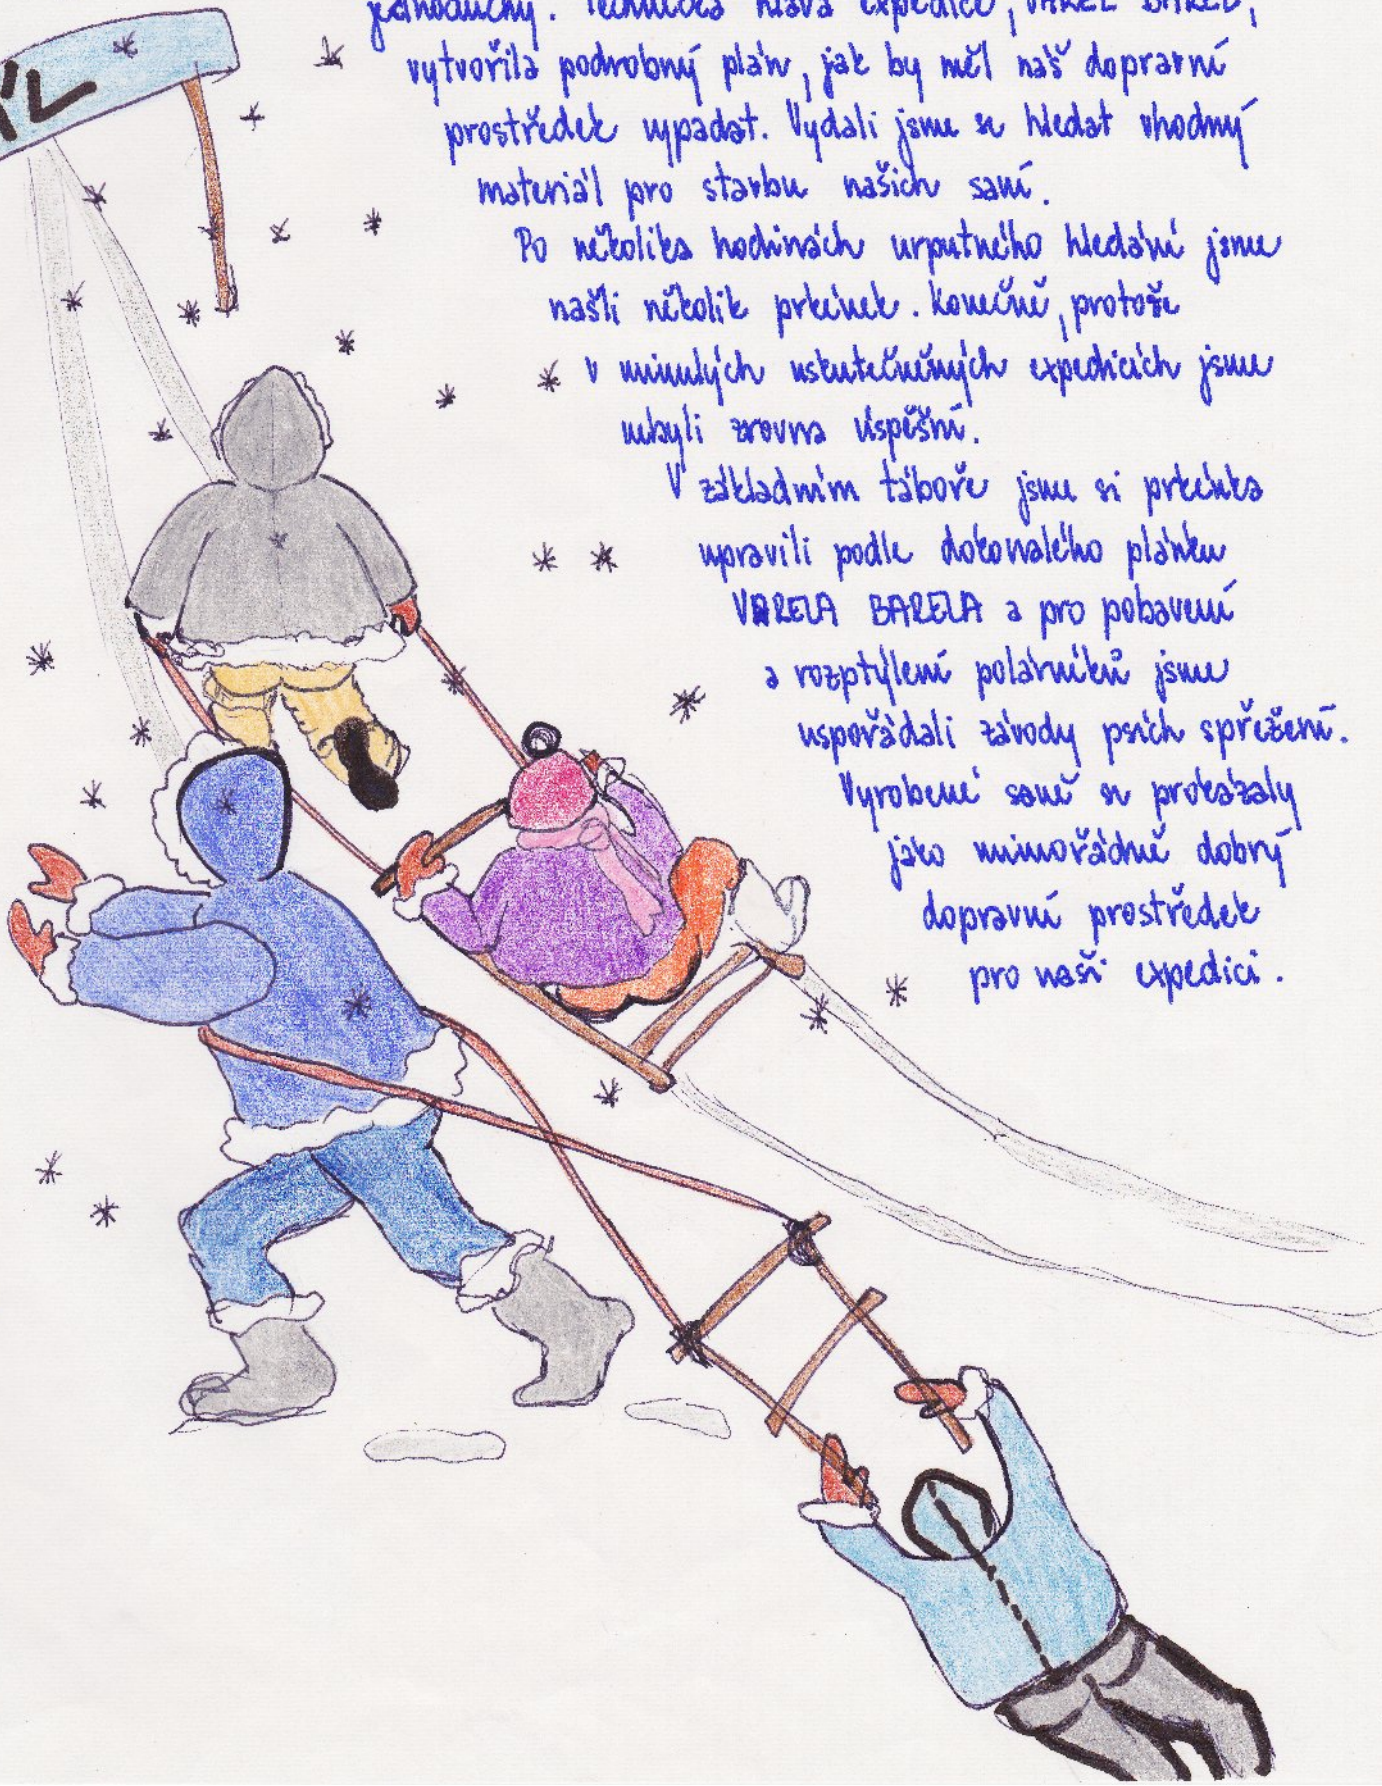 ÍL
jednoduchý. Technická hlava expedice, VAREL BAREL,
vytvořila podrobný plán, jak by měl náš dopravní
prostředek vypadat. Vydali jsme se hledat vhodný
materiál pro stavbu našich saní.
Po několika hodinách urputného hledání jsme
našli několik prkének. Konečně, protože
v minulých uskutečněných expedicích jsme
nebyli zrovna úspěšní.
V základním táboře jsme si prkénka
upravili podle dokonalého plánku
VARELA BARELA a pro pobavení
a rozptýlení polárníků jsme
uspořádali závody psích spřežení.
Vyrobené saně se prokázaly
jako mimořádně dobrý
dopravní prostředek
pro naši expedici.